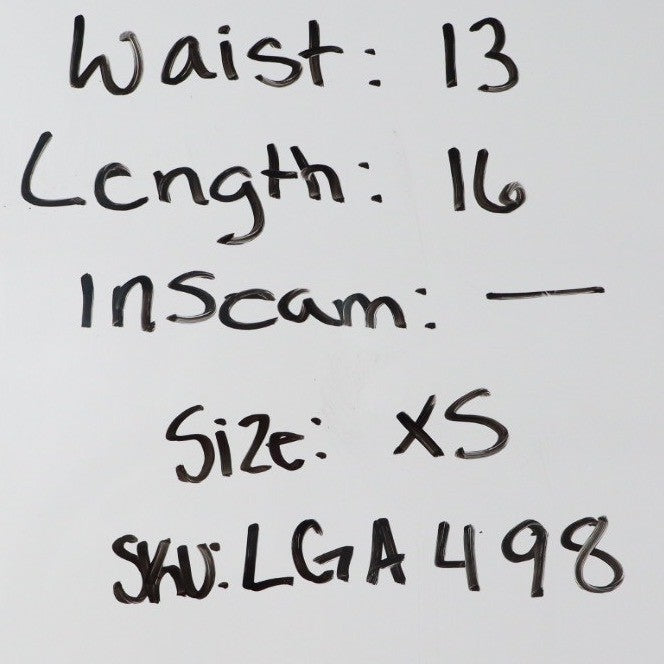 Waist: 13
Length: 16
Inseam: —
Size: XS
SKU: LGA498